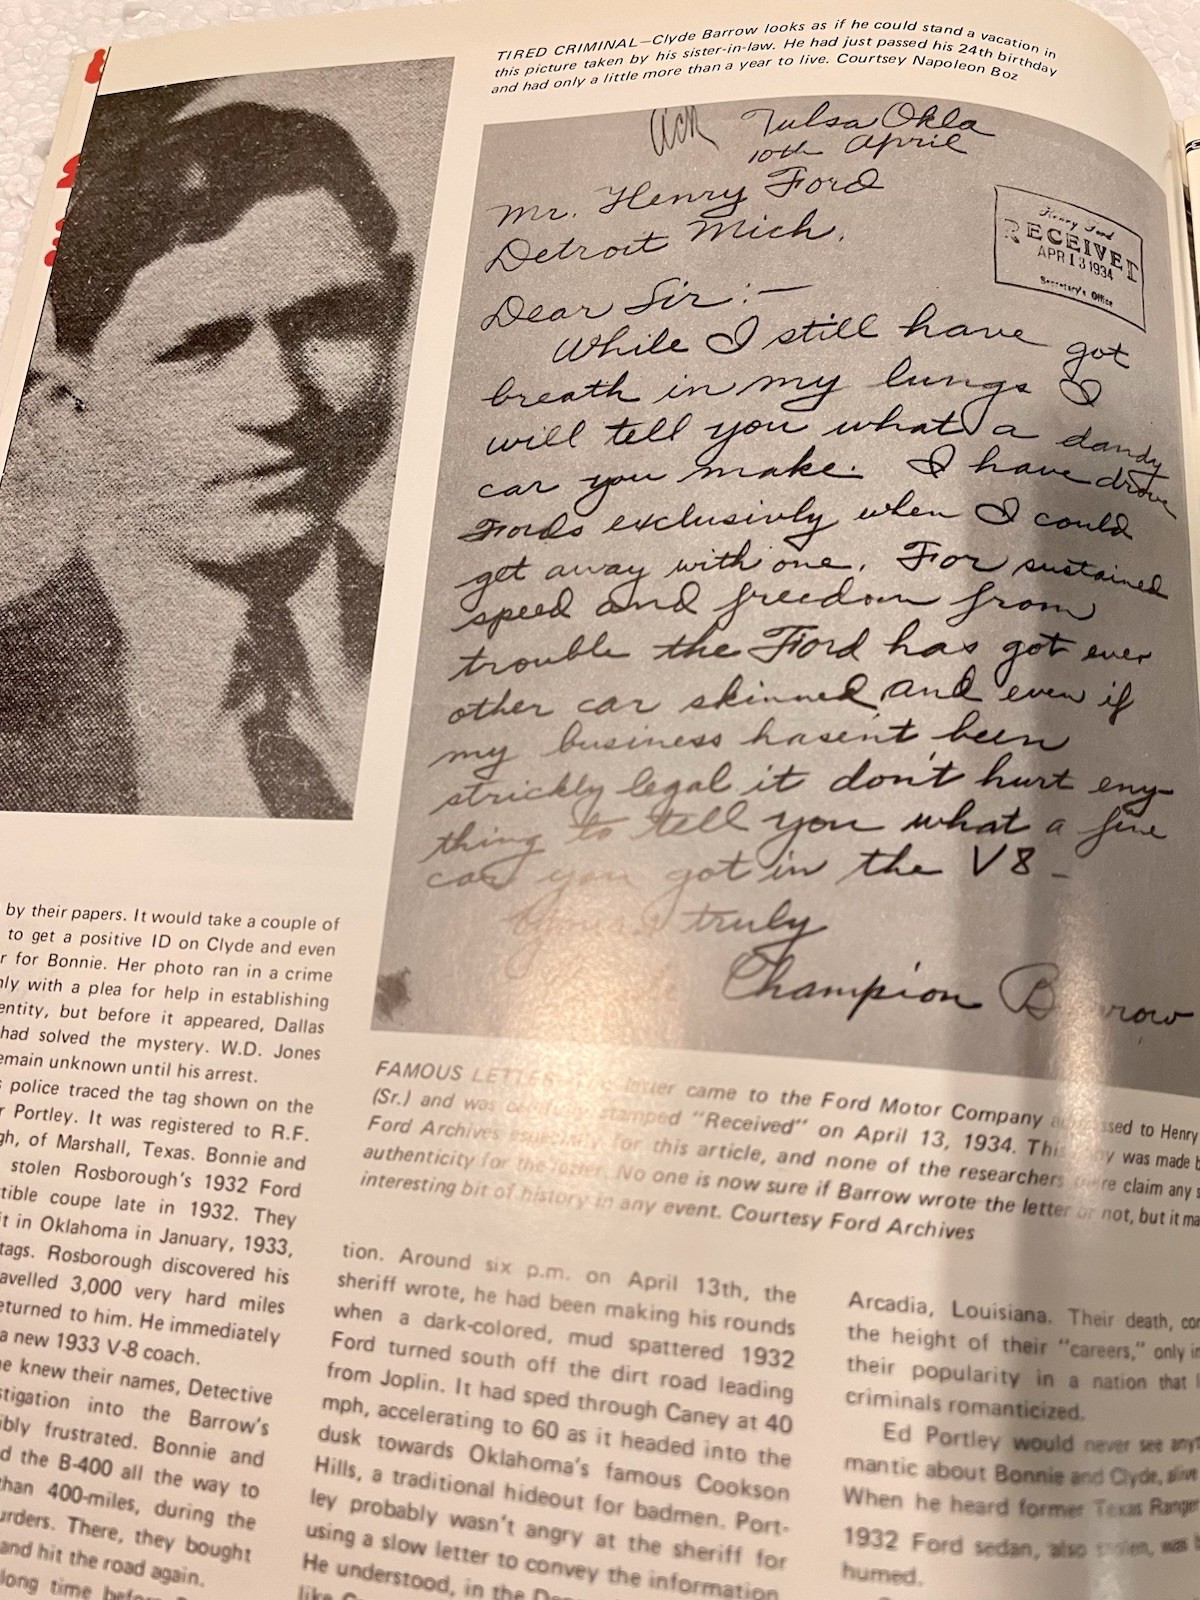 TIRED CRIMINAL—Clyde Barrow looks as if he could stand a vacation in
this picture taken by his sister-in-law. He had just passed his 24th birthday
and had only a little more than a year to live. Courtsey Napoleon Boz
Ack
Tulsa Okla
10th April
Mr. Henry Ford
Detroit Mich.
Henry Ford
RECEIVED
APR 13 1934
Secretary's Office
Dear Sir:—
While I still have got
breath in my lungs I
will tell you what a dandy
car you make. I have drove
Fords exclusivly when I could
get away with one. For sustained
speed and freedom from
trouble the Ford has got ever
other car skinned, and even if
my business hasen't been
strickly legal it don't hurt eny-
thing to tell you what a fine
car you got in the V8 -
Yours truly
Champion Barrow
FAMOUS LETTER letter came to the Ford Motor Company to Henry
(Sr.) and was carefully stamped "Received" on April 13, 1934. This was made
Ford Archives especially for this article, and none of the researchers claim any
authenticity for the letter. No one is now sure if Barrow wrote the letter or not, but it
interesting bit of history in any event. Courtesy Ford Archives
by their papers. It would take a couple of
to get a positive ID on Clyde and even
for Bonnie. Her photo ran in a crime
with a plea for help in establishing
but before it appeared, Dallas
had solved the mystery. W.D. Jones
unknown until his arrest.
police traced the tag shown on the
Portley. It was registered to R.F.
of Marshall, Texas. Bonnie and
stolen Rosborough's 1932 Ford
coupe late in 1932. They
it in Oklahoma in January, 1933,
tags. Rosborough discovered his
3,000 very hard miles
to him. He immediately
a new 1933 V-8 coach.
knew their names, Detective
into the Barrow's
frustrated. Bonnie and
the B-400 all the way to
than 400-miles, during the
There, they bought
and hit the road again.
long time before
tion. Around six p.m. on April 13th, the
sheriff wrote, he had been making his rounds
when a dark-colored, mud spattered 1932
Ford turned south off the dirt road leading
from Joplin. It had sped through Caney at 40
mph, accelerating to 60 as it headed into the
dusk towards Oklahoma's famous Cookson
Hills, a traditional hideout for badmen. Port-
ley probably wasn't angry at the sheriff for
using a slow letter to convey the information
He understood, in the
like
Arcadia, Louisiana. Their death,
the height of their "careers," only
their popularity in a nation that
criminals romanticized.
Ed Portley would never see
mantic about Bonnie and Clyde, alive
When he heard former Texas Ranger
1932 Ford sedan, also stolen, was
humed.